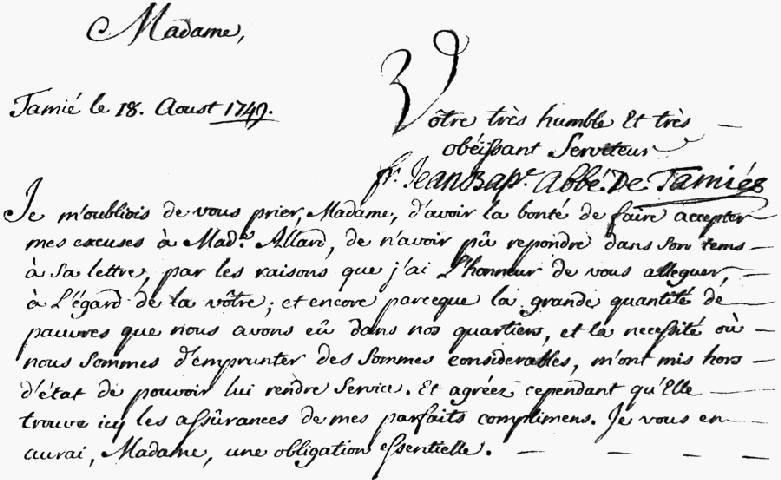 Madame,
Tamié le 18. Aoust 1749.
Vôtre très humble Et très
obéissant Serviteur
fr. Jean Bapt. Abbé De Tamiés
Je m'oubliois de vous prier, Madame, d'avoir la bonté de faire accepter
mes excuses à Made. Allard, de n'avoir pû repondre dans son tems
à sa lettre, par les raisons que j'ai L'honneur de vous alleguer
à L'égard de la vôtre; et encore parceque la grande quantité de
pauvres que nous avons eû dans nos quartiers, et la necessité où
nous sommes d'emprunter des sommes considerables, m'ont mis hors
d'état de pouvoir lui rendre service. Et agréez cependant qu'Elle
trouve icy les assûrances de mes parfaits complimens. Je vous en
aurai, Madame, une obligation essentielle.